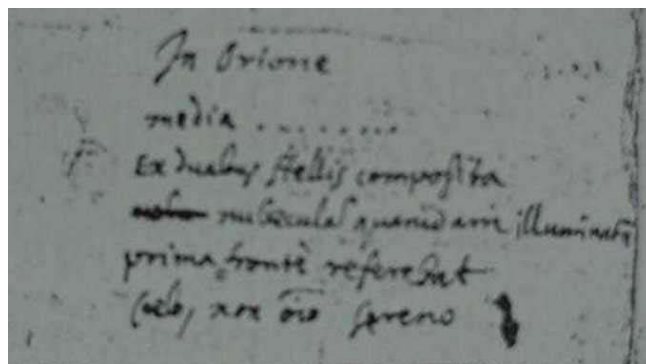 In Orione
media . . . . . . . .
Ex duabus stellis composita
nubeculam quandam illuminatã
prima fronte referebat
Coelo, non oĩo sereno